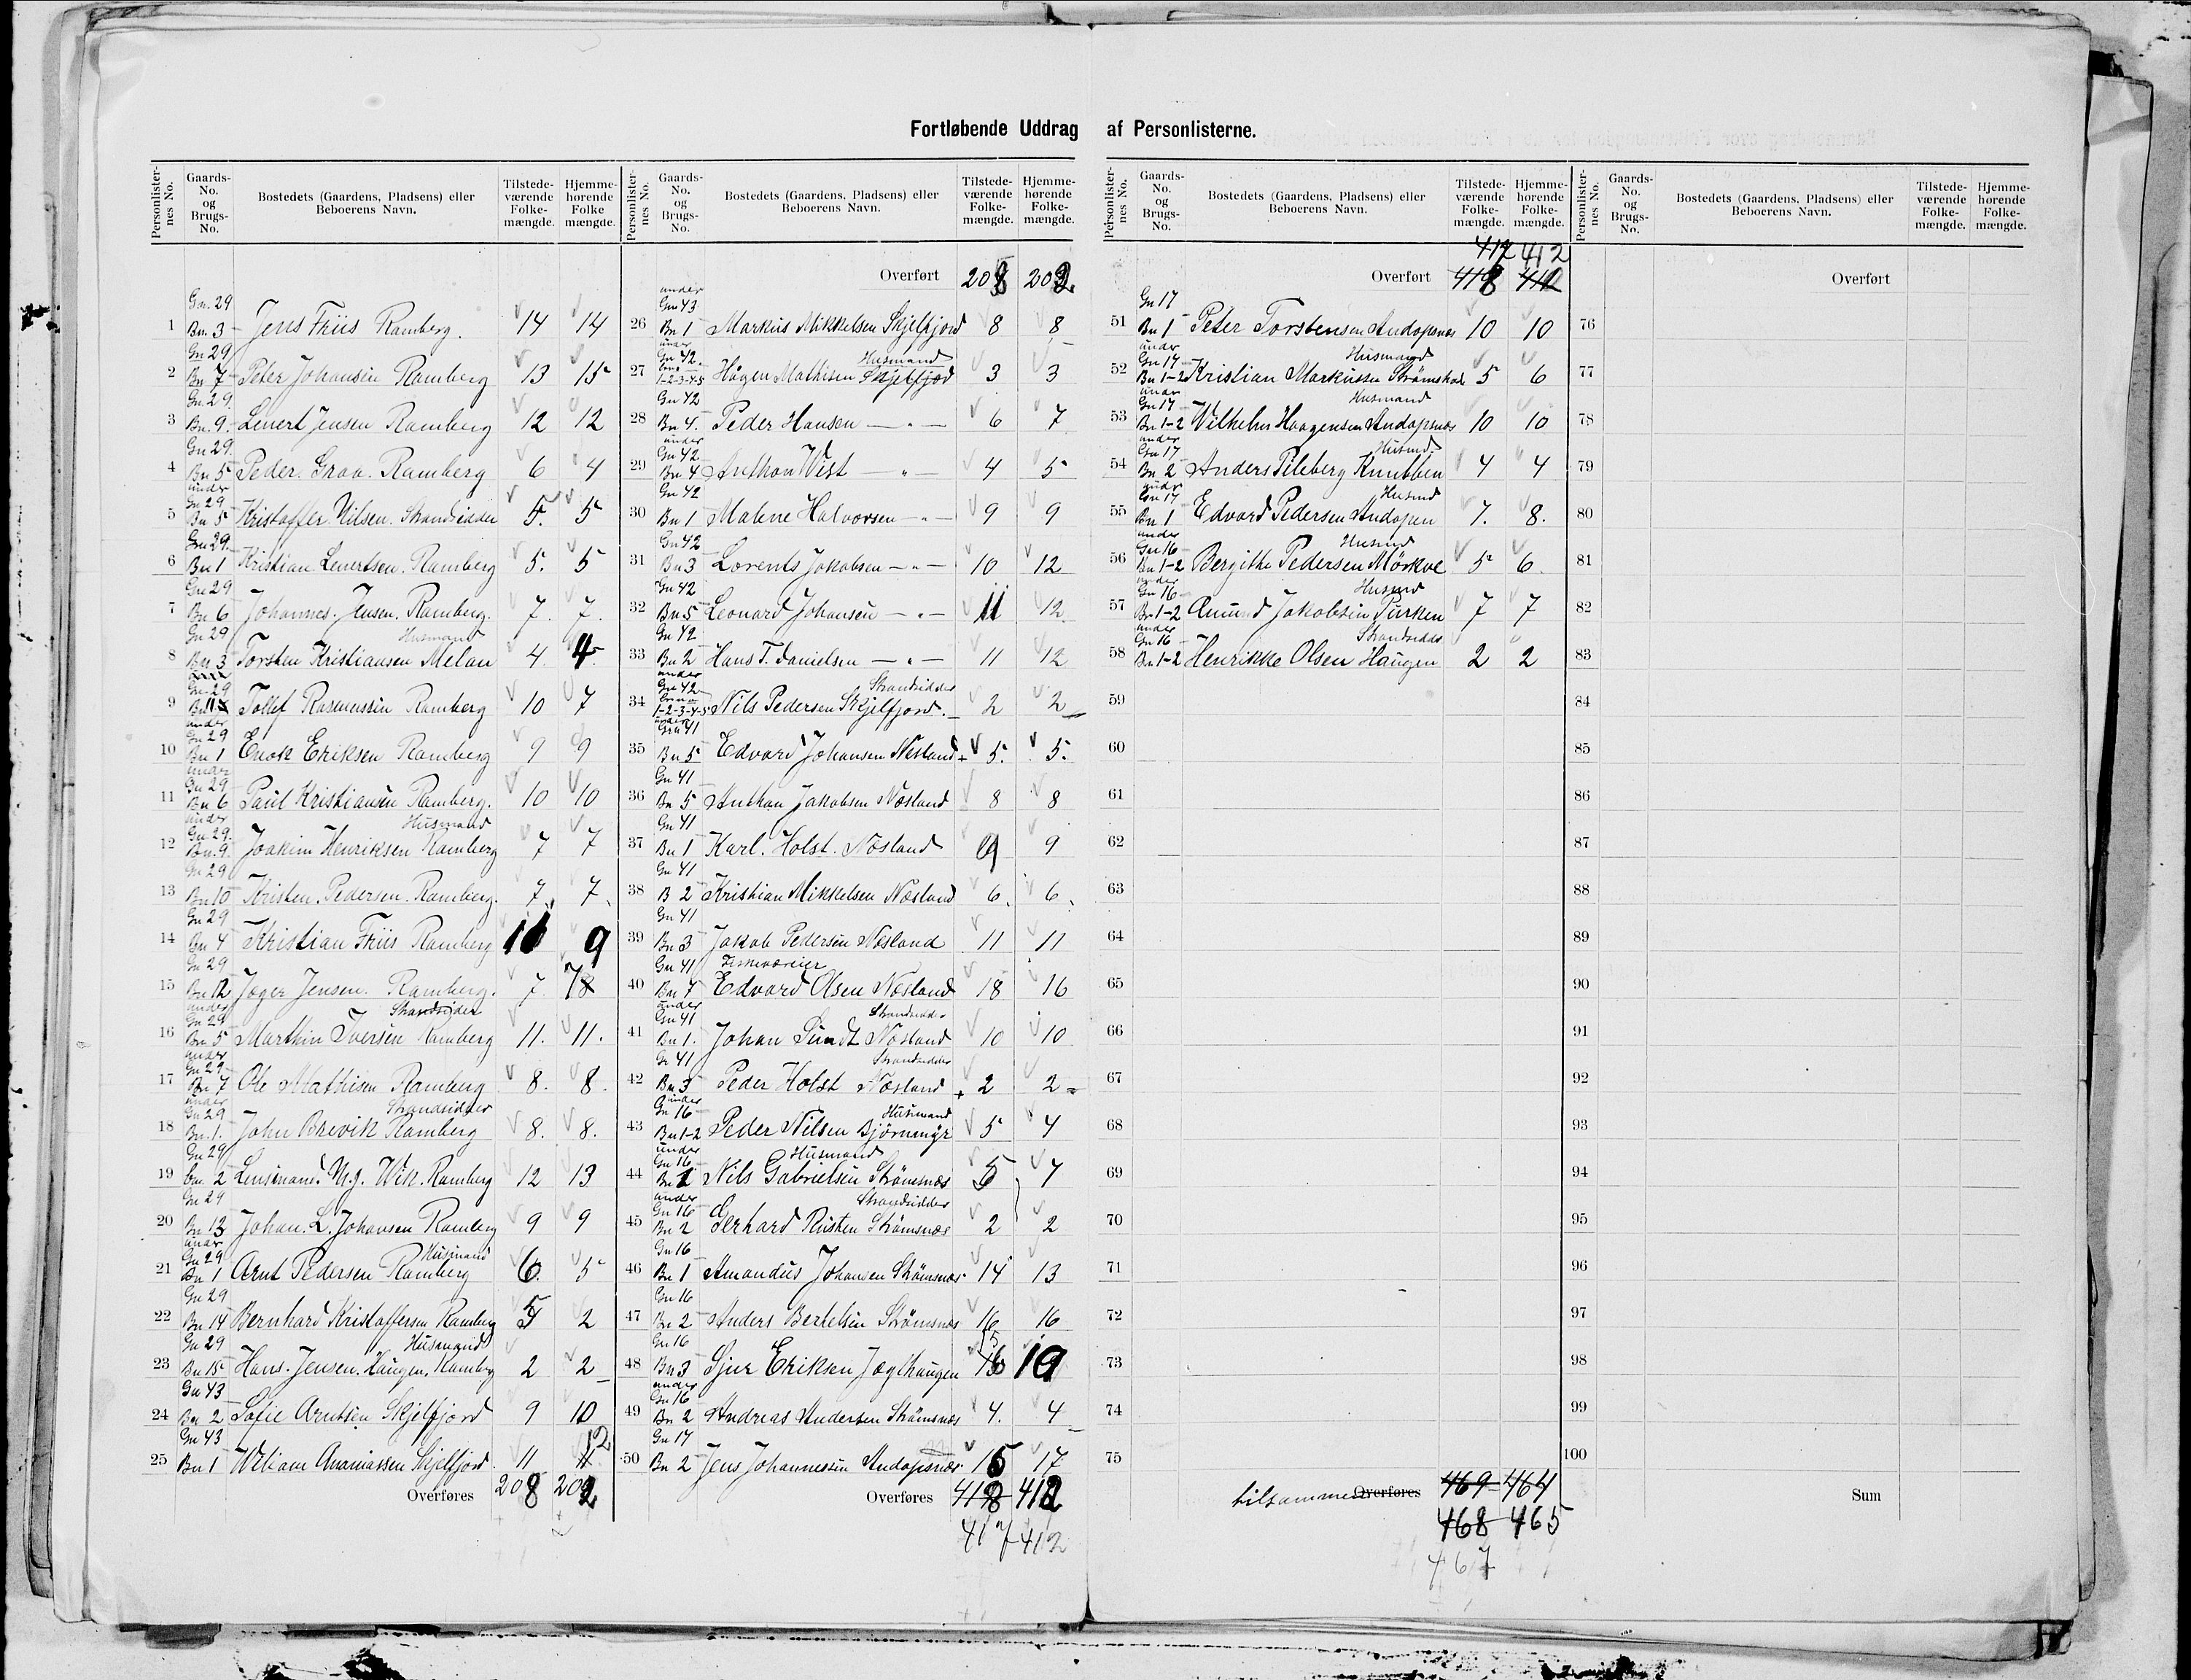 Fortløbende Uddrag af Personlisterne.
Personlisternes No. Gaards-No. og Brugs-No. Bostedets (Gaardens, Pladsens) eller Beboerens Navn. Tilstedeværende Folkemængde. Hjemmehørende Folkemængde.
1 Gn. 29 Bn. 3 Jens Friis Ramberg. 14 14
2 Gn 29 Bn 7 Peter Johansen Ramberg 13 15
3 Gn. 29. Bn. 9. Lenert Jensen Ramberg 12 12
4 Gn 29. Bn 5 Peder. Graa. Ramberg 6 4
5 under Gn 29 Bn 5 Kristoffer Nilsen. Strandsidder 5. 5
6 Gn 29. Bn 1 Kristian Lenertsen. Ramberg 5. 5
7 Gn 29 Bn 6 Johannes. Jensen. Ramberg. 7. 7.
8 Gn 29 Bn 3 Husmand Torsten Kristiansen Melan 4. 4.
9 Gn 29 Bn 11 Tollef Rasmussen Ramberg 10 7
10 under Gn 29 Bn 1 Enok Eriksen Ramberg 9 9
11 under Gn 29 Bn 6 Paul Kristiansen Ramberg. 10 10
12 under Gn 29. Bn. 9. Husmand Joakim Henriksen Ramberg 7 7
13 Gn 29 Bn 10 Kristen. Pedersen. Ramberg. 7. 7.
14 Gn 29 Bn 4 Kristian Friis Ramberg 9
15 Gn 29 Bn 12 Jøger Jensen. Ramberg. 7 7
16 under Gn 29 Bn 5 Strandsidder Marthin Iversen Ramberg 11. 11.
17 under Gn 29 Bn 7 Ole Mathisen Ramberg 8. 8.
18 under Gn 29 Bn. 1. Strandsidder John Brevik Ramberg 8. 8.
19 Gn 29 Bn. 2 Lensmand. Wik. Ramberg 12 13
20 Gn 29 Bn 13 Johan. L. Johansen Ramberg 9 9
21 under Gn 29 Bn 1 Husmand Arnt Pedersen Ramberg 6. 5
22 Gn 29 Bn 14 Bernhard Kristoffersen Ramberg 5 2
23 Gn 29 Bn 15 Husmand Hans. Jensen. Haugen. Ramberg 2 2
24 Gn 43 Bn 2 Sofie Arntsen Skjelfjord 9 10
25 Gn 43 Bn 1 Wiliam Ananiassen Skjelfjord 11 12
Overføres 208 202
Personlisternes No. Gaards-No. og Brugs-No. Bostedets (Gaardens, Pladsens) eller Beboerens Navn. Tilstedeværende Folkemængde. Hjemmehørende Folkemængde.
Overført 208 202.
26 under Gn 43 Bn 1 Markus Mikkelsen Skjelfjord 8 8
27 under Gn 42. Bn 1-2-3-4-5 Husmand Hågen Mathisen Skjelfjod 3 3
28 Gn 42 Bn 4. Peder Hansen — " — 6 7
29 under Gn 42 Bn 4 Anthon Wist — " — 4 5
30 Gn 42 Bn 1 Malene Halvorsen — " — 9 9
31 Gn 42 Bn 3 Lorents Jakobsen — " — 10 12
32 Gn 42 Bn 5 Leonard Johansen — " — 11 12
33 Gn 42 Bn 2 Hans T. Danielsen — " — 11 12
34 under Gn 42 1-2-3-4-5 Strandsidder Nils Pedersen Skjelfjord. 2 2
35 under Gn 41 Bn 5 Edvard Johansen Næsland 5. 5.
36 Gn 41 Bn 5 Anthon Jakobsen Næsland 8 8
37 Gn 41 Bn 1 Karl. Holst. Næsland 9 9
38 Gn 41 B 2 Kristian Mikkelsen Næsland 6. 6.
39 Gn 41 Bn 3 Jakob Pedersen Næsland 11 11
40 Gn 41 Bn 7 Edvard Olsen Næsland 18 16
41 under Gn 41 Bn 1. Strandsidder Johan Sundt Næsland 10 10
42 Gn 41 Bn 3 Strandsidder Peder Holst Næsland 2 2
43 under Gn 16 Bn 1-2 Husmand Peder Nilsen Bjørnmyr 5 4
44 under Gn 16 Bn 1 Husmand Nils Gabrielsen Strømsnæs 5 7
45 under Gn 16 Bn 2 Strandsidder Gerhard Risten Strømsnæs 2 2
46 Gn 16 Bn 1 Amandus Johansen Strømsnæs 14 13
47 Gn 16 Bn 2 Anders Bertelsen Strømsnæs 16 16
48 Gn 16 Bn 3 Sjur Eriksen Jægthaugen 15 19
49 under Gn 16 Bn 2 Andreas Andersen Strømsnæs 4. 4
50 Gn 17 Bn 2 Jens Johannessen Andopsnæs 15 17
Overføres 418 412
417 412
Personlisternes No. Gaards-No. og Brugs-No. Bostedets (Gaardens, Pladsens) eller Beboerens Navn. Tilstedeværende Folkemængde. Hjemmehørende Folkemængde.
417 412
Overført 418 412
51 Gn 17 Bn 1 Peter Torstensen Andopsnæs 10 10
52 under Gn 17 Bn 1-2 Husmand Kristian Markussen 5 6
53 under Gn 17 Bn 1-2 Husmand Wilhelm Haagensen Andopsnæs 10 10
54 under Gn 17 Bn 2 Husmd. Anders Pileberg Knubben 4 4
55 under Gn 17 Bn 1 Husmd Edvard Pedersen Andopen 7. 8.
56 under Gn 16 Bn 1-2 Husmd Bergithe Pedersen Mørkve 5 6.
57 under Gn 16 Bn 1-2 Husmd Amund Jakobsen Purken 7 7
58 under Gn 16 Bn 1-2 Strandsidder Henrikke Olsen Haugen 2 2
59
60
61
62
63
64
65
66
67
68
69
70
71
72
73
74
75
tilsammen Overføres 469 464
468 465
467
Personlisternes No. Gaards-No. og Brugs-No. Bostedets (Gaardens, Pladsens) eller Beboerens Navn. Tilstedeværende Folkemængde. Hjemmehørende Folkemængde.
Overført
76
77
78
79
80
81
82
83
84
85
86
87
88
89
90
91
92
93
94
95
96
97
98
99
100
Sum